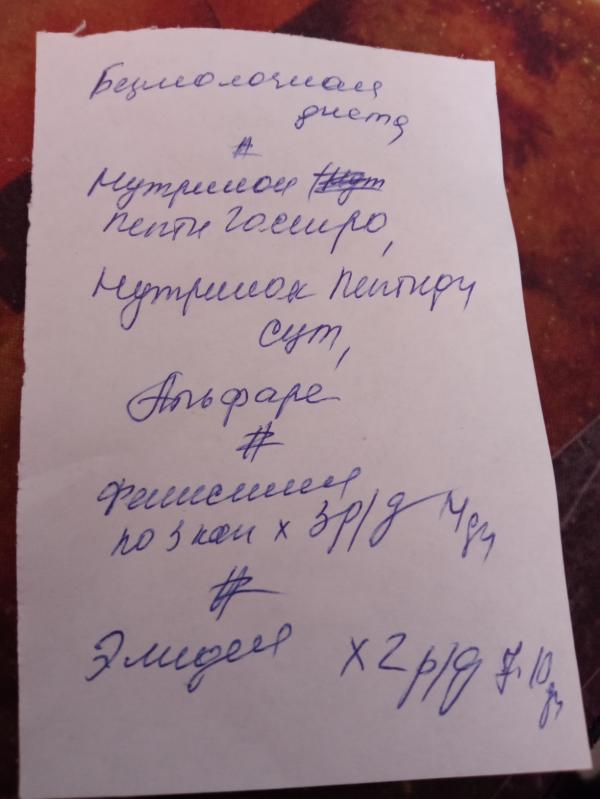 Безмолочная
диета
#
Нутрилон
пепти Гастро,
Нутрилак Пептиди
СЦТ,
Альфаре
#
Фенистил
по 3 кап x 3 р/д 14 дн
#
Элидел x 2 р/д 7-10 дн